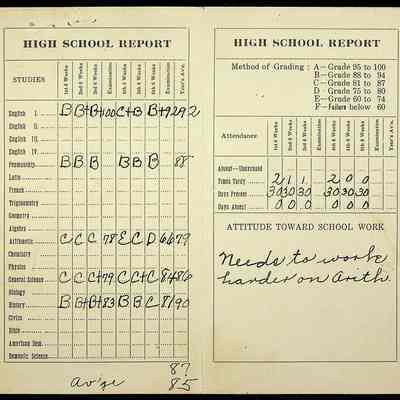 HIGH SCHOOL REPORT
STUDIES 1st 6 Weeks 2nd 6 Weeks 3rd 6 Weeks Examination 4th 6 Weeks 5th 6 Weeks 6th 6 Weeks Examination Year's Av'e.
English I. B B+ B+ 100 C+ B B+ 92 92
English II.
English III.
English IV.
Penmanship B B B B B B 88
Latin
French
Trigonometry
Geometry
Algebra
Arithmetic C C C 78 E C D 66 79
Chemistry
Physics
General Science C C C+ 79 C C+ C 84 86
Biology
History B B+ B+ 83 B B C 81 90
Civics
Bible
American Dem.
Domestic Science
87
Av'ge 85
HIGH SCHOOL REPORT
Method of Grading: A—Grade 95 to 100
B—Grade 88 to 94
C—Grade 81 to 87
D-Grade 75 to 80
E—Grade 60 to 74
F—Failure below 60
Attendance 1st 6 Weeks 2nd 6 Weeks 3rd 6 Weeks Examination 4th 6 Weeks 5th 6 Weeks 6th 6 Weeks Examination Year's Av'e.
About—Unexcused
Times Tardy 2 1 1 2 0 0
Days Present 30 30 30 30 30 30
Days Absent 0 0 0 0 0 0
ATTITUDE TOWARD SCHOOL WORK
Needs to work
harder on Arith.